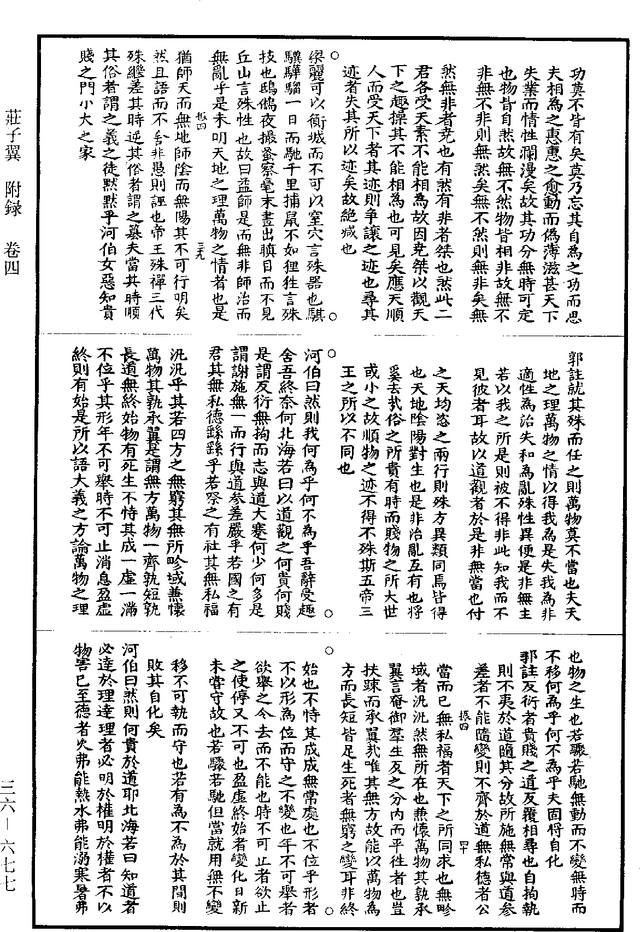 莊子翼 附录 卷四
三六—六七七
功莫不皆有矣莫乃忘其自為之功而思
夫相為之惠惠之愈勤而偽薄滋甚天下
失業而情性瀾漫矣故其功分無時可定
也物皆自然故無不然物皆相非故無不
非無不非則無然矣無不然則無非矣無
然無非者堯也有然有非者桀也然此二
君各受天素不能相為故因堯桀以觀天
下之趣操其不能相為也可見矣應天順
人而受天下者其迹則爭讓之迹也尋其
迹者失其所以迹矣故絶滅也
梁麗可以衝城而不可以窒穴言殊器也騏
驥驊騮一日而馳千里捕鼠不如狸狌言殊
技也鴟鵂夜撮蚤察毫末晝出瞋目而不見
丘山言殊性也故曰蓋師是而無非師治而
無亂乎是未明天地之理萬物之情者也是
猶師天而無地師陰而無陽其不可行明矣
然且語而不舍非愚則誣也帝王殊禪三代
殊繼差其時逆其俗者謂之篡夫當其時順
其俗者謂之義之徒默默乎河伯女惡知貴
賤之門小大之家
郭註就其殊而任之則萬物莫不當也夫天
地之理萬物之情以得我為是失我為非
適性為治失和為亂殊性異便是非無主
若以我之所是則彼不得非此知我而不
見彼者耳故以道觀者於是非無當也付
之天均恣之兩行則殊方異類同焉皆得
也天地陰陽對生也是非治亂互有也將
奚去哉俗之所貴有時而賤物之所大世
或小之故順物之迹不得不殊斯五帝三
王之所以不同也
河伯曰然則我何為乎何不為乎吾辭受趣
舍吾終奈何北海若曰以道觀之何貴何賤
是謂反衍無拘而志與道大蹇何少何多是
謂謝施無一而行與道參差嚴乎若國之有
君其無私德繇繇乎若祭之有社其無私福
汎汎乎其若四方之無窮其無所畛域兼懷
萬物其孰承翼是謂無方萬物一齊孰短孰
長道無終始物有死生不恃其成一虛一滿
不位乎其形年不可舉時不可止消息盈虛
終則有始是所以語大義之方論萬物之理
也物之生也若驟若馳無動而不變無時而
不移何為乎何不為乎夫固將自化
郭註反衍者貴賤之道反覆相尋也自拘執
則不夷於道隨其分故所施無常與道參
差者不能隨變則不齊於道無私德者公
當而已無私福者天下之所同求也無畛
域者汎汎然無所在也兼懷萬物其孰承
翼言奄御羣生反之分內而平往者也豈
扶踈而承翼哉唯其無方故能以萬物為
方而長短皆足生死者無窮之變耳非終
始也不恃其成成無常處也不位乎形者
不以形為位而守之不變也年不可舉者
欲舉之令去而不能也時不可止者欲止
之使停又不可也盈虛終始者變化日新
未嘗守故也若驟若馳但當就用無不變
移不可執而守也若有為不為於其間則
敗其自化矣
河伯曰然則何貴於道耶北海若曰知道者
必達於理達理者必明於權明於權者不以
物害已至德者火弗能熱水弗能溺寒暑弗